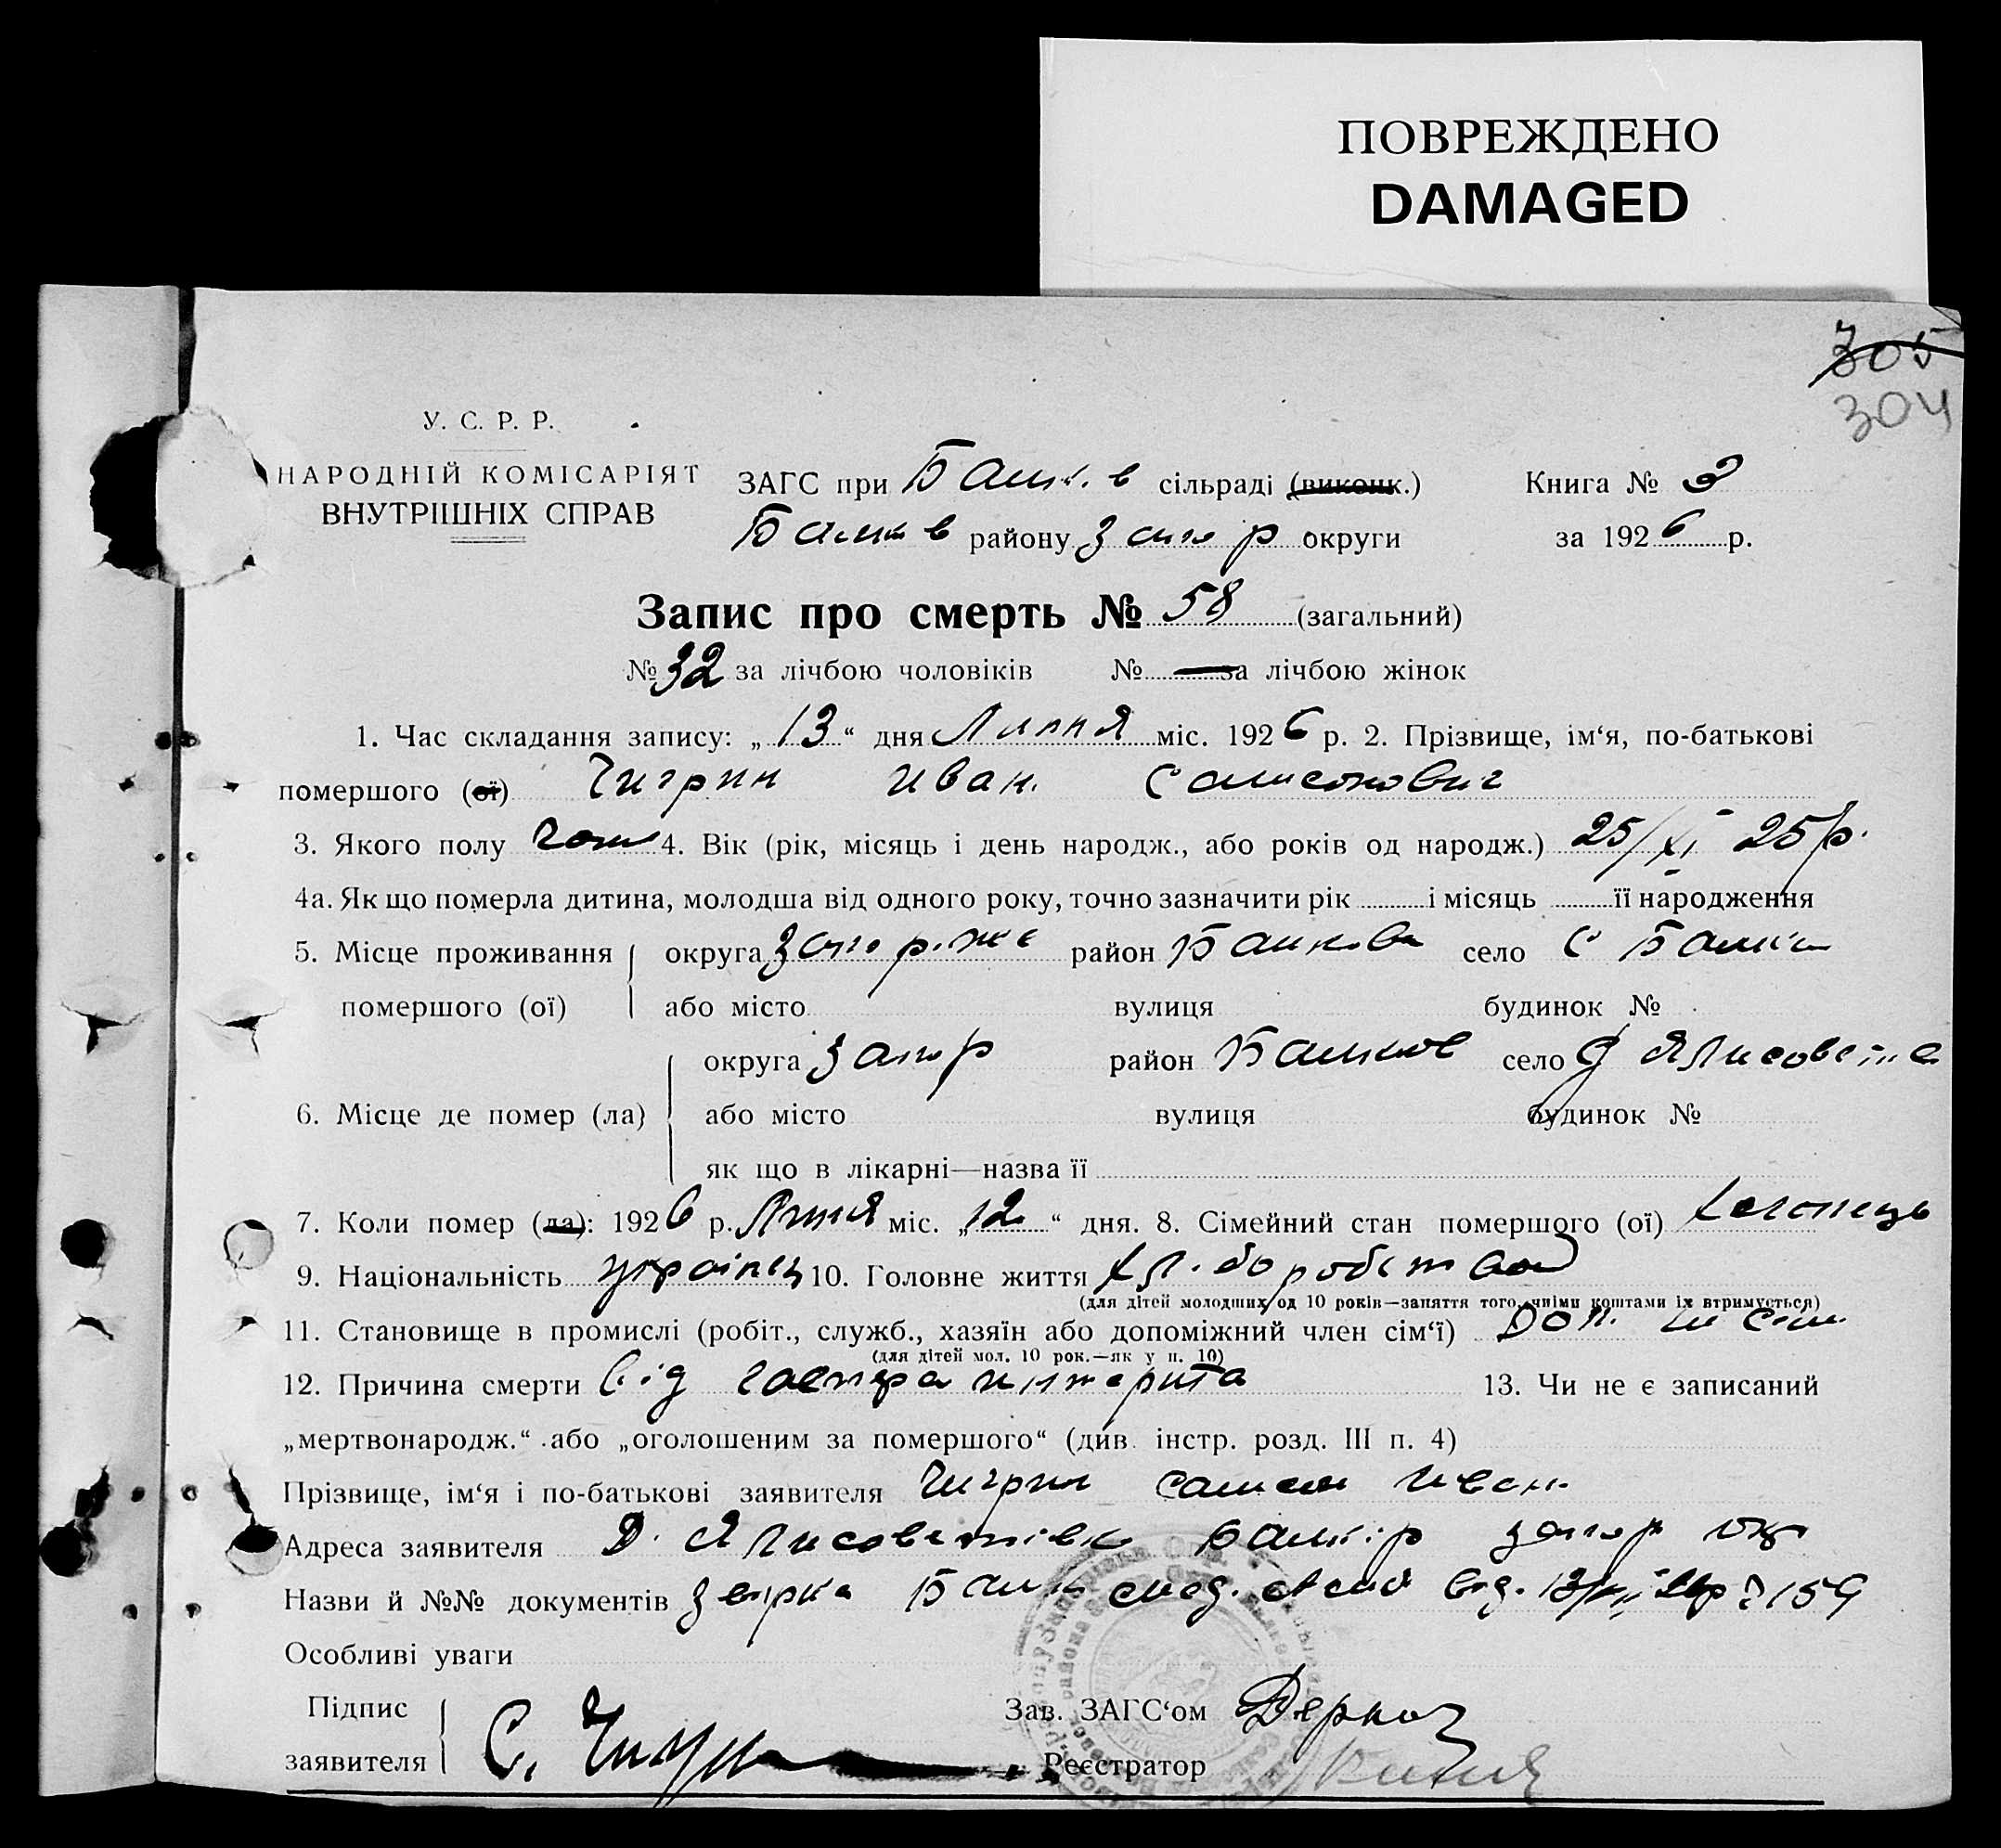 ПОВРЕЖДЕНО
DAMAGED
305
304
У. С. Р. Р.
НАРОДНІЙ КОМІСАРІЯТ
ВНУТРІШНІХ СПРАВ
ЗАГС при сільраді (виконк.) Книга № 3
району Запор округи за 1926 р.
Запис про смерть № 58 (загальний)
№ 32 за лічбою чоловіків № — за лічбою жінок
1. Час складання запису: „13“ дня Липня міс. 1926 р. 2. Прізвище, ім‘я, по-батькові
помершого (ої) Чигрин Иван. Самсонович
3. Якого полу Чол 4. Вік (рік, місяць і день народж., або років од народж.) 25/XI 25р.
4а. Як що померла дитина, молодша від одного року, точно зазначити рік і місяць її народження
5. Місце проживання округа район село
помершого (ої) або місто вулиця будинок №
округа Запор район село
6. Місце де помер (ла) або місто вулиця будинок №
як що в лікарні—назва її
7. Коли помер (ла): 1926 р. Липня міс. „12“ дня. 8. Сімейний стан помершого (ої) Холопець
9. Національність українец 10. Головне життя Хліборобством
(для дітей молодших од 10 років—заняття того, чиїми коштами їх втримується)
11. Становище в промислі (робіт., служб., хазяїн або допоміжний член сім‘ї) Доп. чл сем.
(для дітей мол. 10 рок.—як у п. 10)
12. Причина смерти Від гастра интерита 13. Чи не є записаний
„мертвонародж.“ або „оголошеним за помершого“ (див. інстр. розд. III п. 4)
Прізвище, ім‘я і по-батькові заявителя Чигрин Самсон Иван.
Адреса заявителя Д. Запор окр
Назви й №№ документів від. 159
Особливі уваги
Підпис Зав. ЗАГС‘ом Деркач
заявителя С. Чигрин Реєстратор